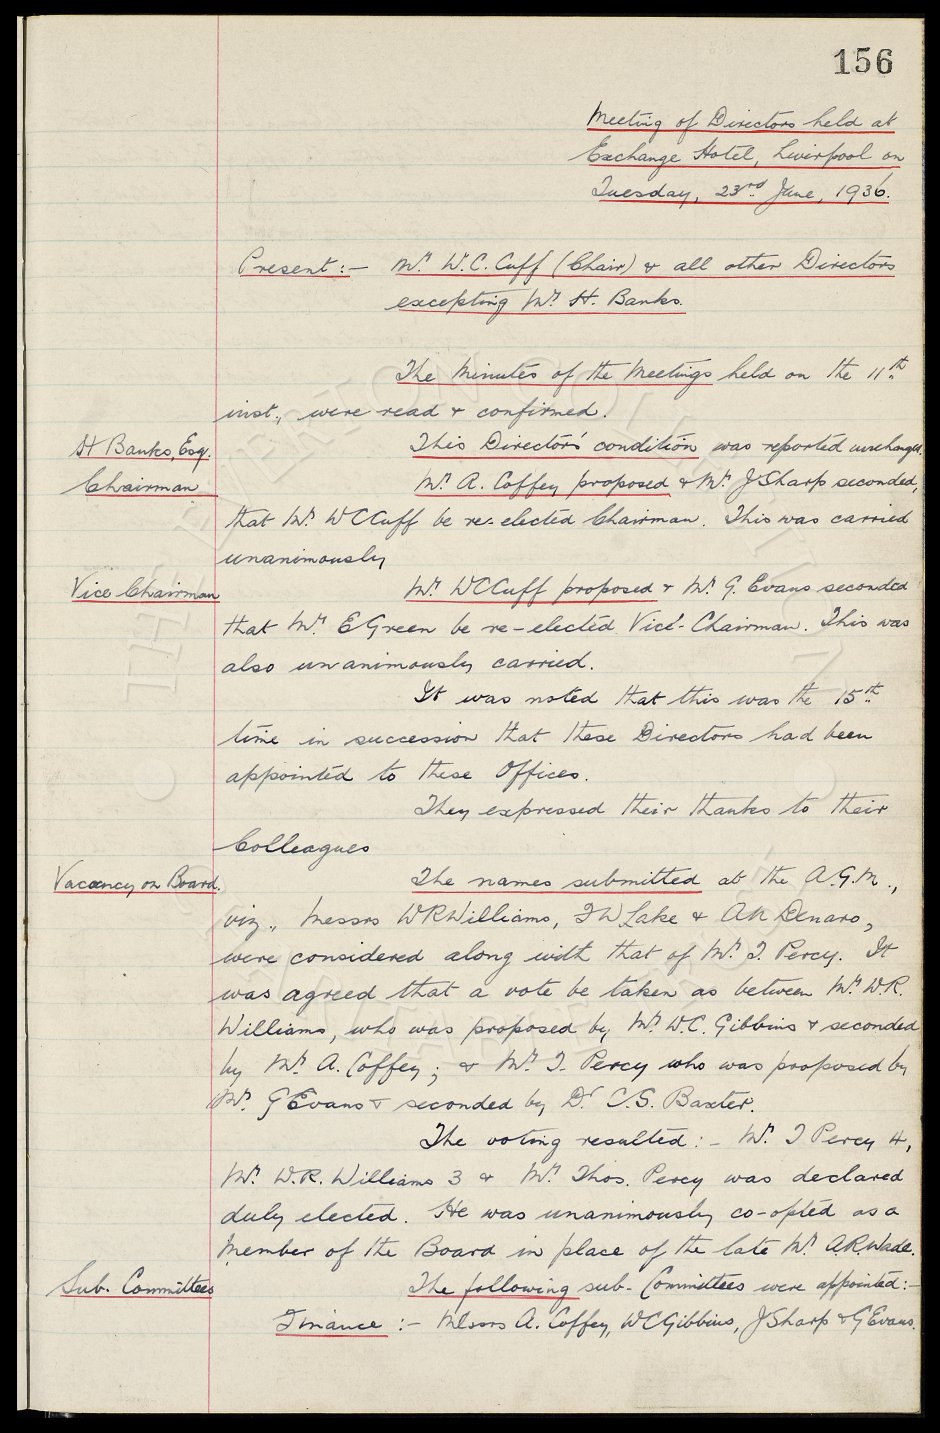 156
Meeting of Directors held at
Exchange Hotel, Liverpool on
Tuesday, 23rd June, 1936.
Present:— Mr. W.C. Cuff (Chair) & all other Directors
excepting Mr. H. Banks.
The Minutes of the Meetings held on the 11th
inst., were read & confirmed.
H Banks, Esq. This Directors' condition was reported unchanged.
Chairman Mr. A. Coffey proposed & Mr. J Sharp seconded,
that Mr. W C Cuff be re-elected Chairman. This was carried
unanimously
Vice Chairman Mr. W C Cuff proposed & Mr. G. Evans seconded
that Mr. E Green be re-elected Vice-Chairman. This was
also unanimously carried.
It was noted that this was the 15th
time in succession that these Directors had been
appointed to these Offices.
They expressed their thanks to their
Colleagues
Vacancy on Board. The names submitted at the A.G.M.,
viz., Messrs W R Williams, F W Lake & A N Denaro,
were considered along with that of Mr. T. Percy. It
was agreed that a vote be taken as between Mr. W.R.
Williams, who was proposed by Mr. W.C. Gibbins & seconded
by Mr. A. Coffey; & Mr. T. Percy who was proposed by
Mr. G Evans & seconded by Dr. C.S. Baxter.
The voting resulted:— Mr. T Percy 4,
Mr. W.R. Williams 3 & Mr. Thos. Percy was declared
duly elected. He was unanimously co-opted as a
Member of the Board in place of the late Mr. A.R. Wade.
Sub-Committees The following sub-Committees were appointed:—
Finance:— Messrs A. Coffey, W C Gibbins, J Sharp & G Evans.